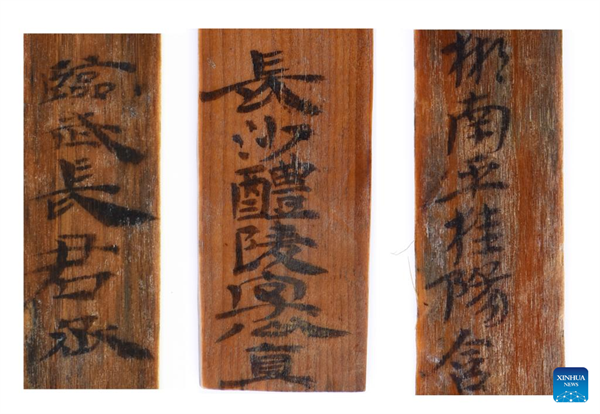 臨武長君丞
長沙醴陵
郴南平桂陽含
XINHUA
NEWS